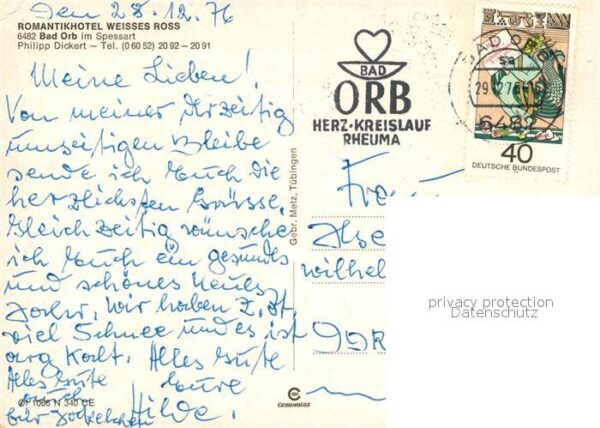 Den 28.12.76
ROMANTIKHOTEL WEISSES ROSS
6482 Bad Orb im Spessart
Philipp Dickert - Tel. (0 60 52) 20 92 - 20 91
Meine Lieben!
Von meiner derzeitig
unseitigen Bleibe
sende ich Euch die
herzlichsten Grüsse.
Gleichzeitig wünsche
ich Euch ein gesundes
und schönes Neues
Jahr. Wir haben z. Zt.
viel Schnee und es ist
arg Kalt. Alles Gute
Alles Gute Eure
auch Hilde.
für
Ch 1086 N 340 CE
Gebr. Metz, Tübingen
CHROMOLUX
BAD
ORB
HERZ-KREISLAUF
RHEUMA
BAD ORB
sa
29.12.76
6482
40
DEUTSCHE BUNDESPOST
Frau
Ilse
Wilhel
DDR
privacy protection
Datenschutz